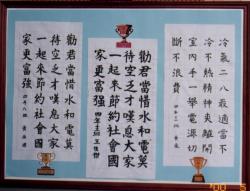 冷氣二八最適當不
冷不熱精神爽離開
室內手一舉電源切
斷不浪費
勸君當惜水和電莫
待空乏才嘆息大家
一起來節約社會國
家更富強
勸君當惜水和電莫
待空乏才嘆息大家
一起來節約社會國
家更富強